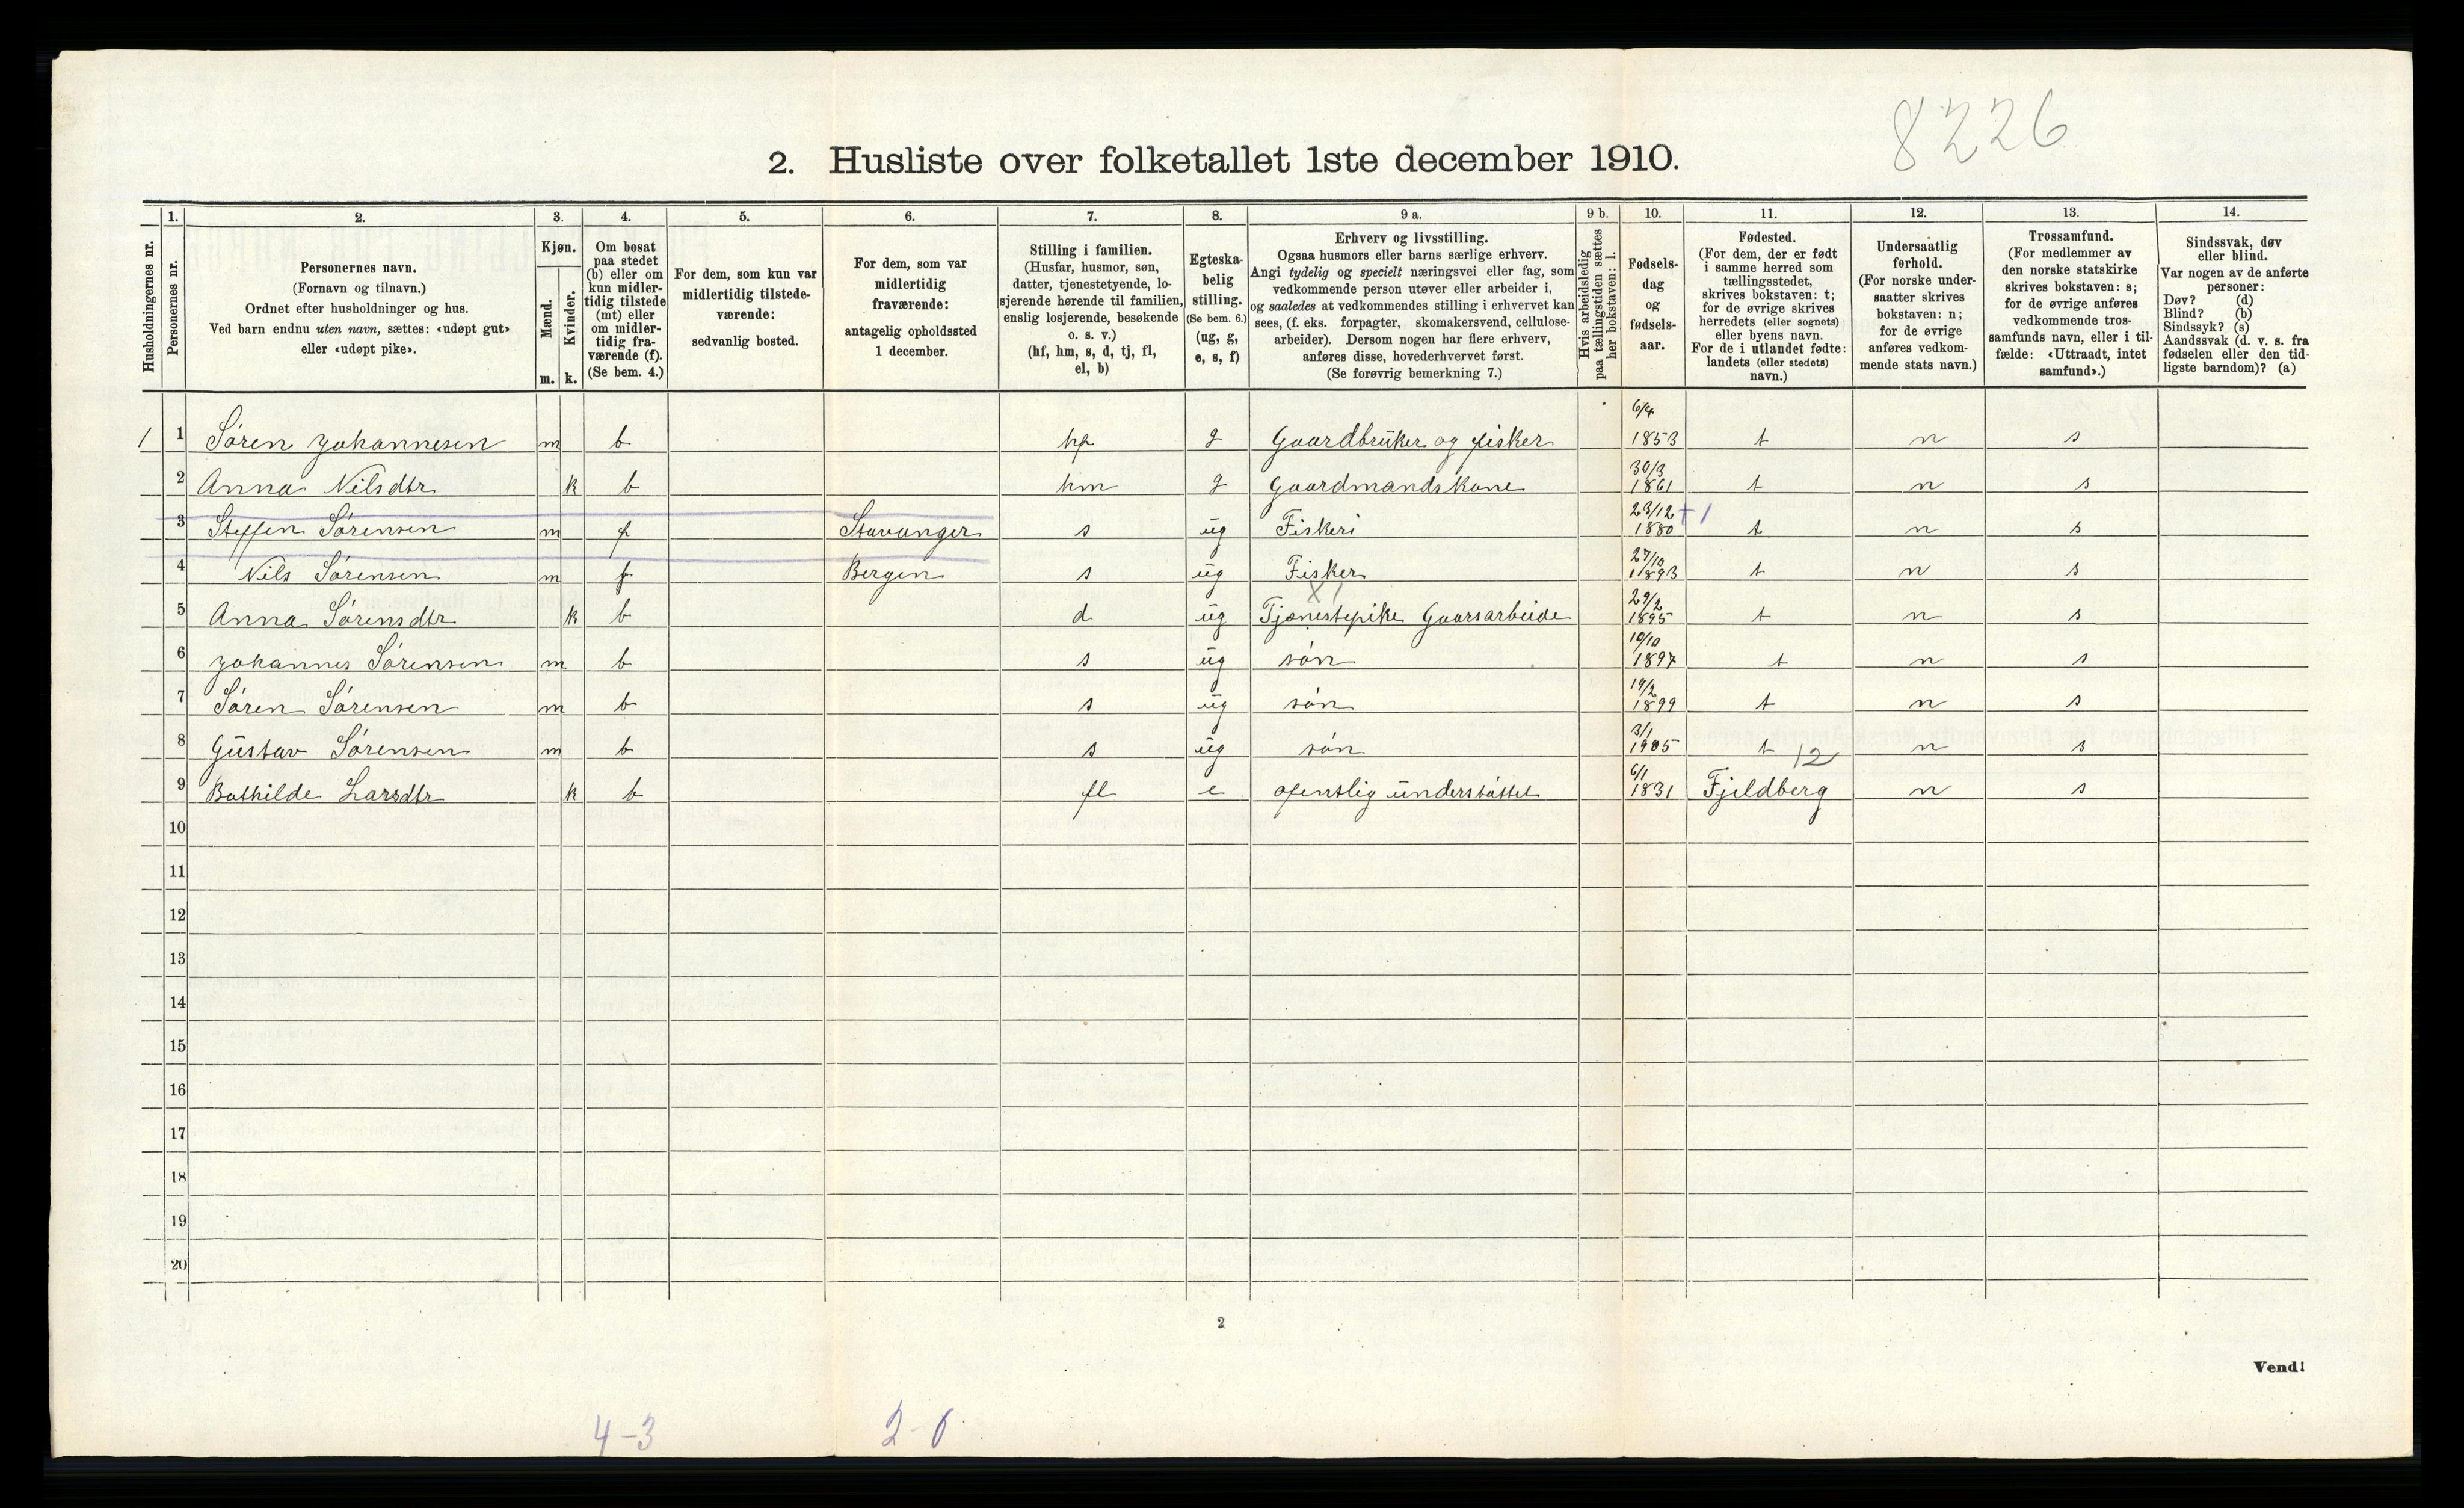 8226
2. Husliste over folketallet 1ste december 1910.
Husholdningernes nr.
1.
Personernes nr.
2.
Personernes navn.
(Fornavn og tilnavn.)
Ordnet efter husholdninger og hus.
Ved barn endnu uten navn, sættes: «udøpt gut»
eller «udøpt pike».
3.
Kjøn.
Mænd.
Kvinder.
m. k.
4.
Om bosat
paa stedet
(b) eller om
kun midler-
tidig tilstede
(mt) eller
om midler-
tidig fra-
værende (f).
(Se bem. 4.)
5.
For dem, som kun var
midlertidig tilstede-
værende:
sedvanlig bosted.
6.
For dem, som var
midlertidig
fraværende:
antagelig opholdssted
1 december.
7.
Stilling i familien.
(Husfar, husmor, søn,
datter, tjenestetyende, lo-
sjerende hørende til familien,
enslig losjerende, besøkende
o. s. v.)
(hf, hm, s, d, tj, fl,
el, b)
8.
Egteska-
belig
stilling.
(Se bem. 6.)
(ug, g,
e, s, f)
9 a.
Erhverv og livsstilling.
Ogsaa husmors eller barns særlige erhverv.
Angi tydelig og specielt næringsvei eller fag, som
vedkommende person utøver eller arbeider i,
og saaledes at vedkommendes stilling i erhvervet kan
sees, (f. eks. forpagter, skomakersvend, cellulose-
arbeider). Dersom nogen har flere erhverv,
anføres disse, hovederhvervet først.
(Se forøvrig bemerkning 7.)
9 b.
Hvis arbeidsledig
paa tællingstiden sættes
her bokstaven: l.
10.
Fødsels-
dag
og
fødsels-
aar.
11.
Fødested.
(For dem, der er født
i samme herred som
tællingsstedet,
skrives bokstaven: t;
for de øvrige skrives
herredets (eller sognets)
eller byens navn.
For de i utlandet fødte:
landets (eller stedets)
navn.)
12.
Undersaatlig
forhold.
(For norske under-
saatter skrives
bokstaven: n;
for de øvrige
anføres vedkom-
mende stats navn.)
13.
Trossamfund.
(For medlemmer av
den norske statskirke
skrives bokstaven: s;
for de øvrige anføres
vedkommende tros-
samfunds navn, eller i til-
fælde: «Uttraadt, intet
samfund».)
14.
Sindssvak, døv
eller blind.
Var nogen av de anførte
personer:
Døv? (d)
Blind? (b)
Sindssyk? (s)
Aandssvak (d. v. s. fra
fødselen eller den tid-
ligste barndom)? (a)
1 1 Søren Johannesen m b hf g Gaardbruker og fisker 6/4 1853 t n s
2 Anna Nilsdtr k b hm g Gaardmandskone 30/3 1861 t n s
3 Steffen Sørensen m f Stavanger s ug Fiskeri 23/12 1880 t n s
4 Nils Sørensen m f Bergen s ug Fisker 27/10 1893 t n s
5 Anna Sørensdtr k b d ug Tjenestepike Gaarsarbeide 29/2 1895 t n s
6 Johannes Sørensen m b s ug søn 10/10 1897 t n s
7 Søren Sørensen m b s ug søn 19/2 1899 t n s
8 Gustav Sørensen m b s ug søn 3/1 1905 t n s
12
9 Bathilde Larsdtr k b fl e ofentlig understøttet 6/1 1831 Fjeldberg n s
10
11
12
13
14
15
16
17
18
19
20
2
Vend!
4-3
2-0